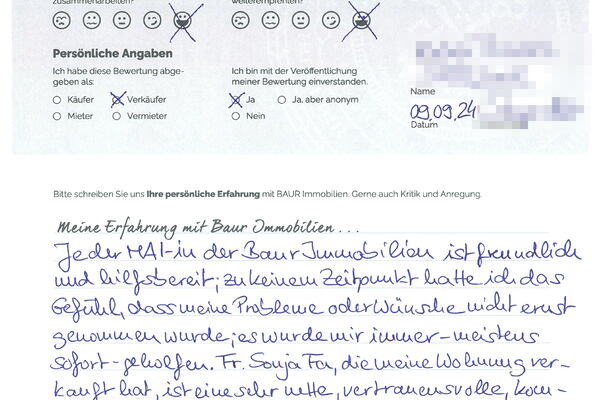 zusammenarbeiten?
weiterempfehlen?
Persönliche Angaben
Ich habe diese Bewertung abge-
geben als:
Ich bin mit der Veröffentlichung
meiner Bewertung einverstanden.
Käufer Verkäufer
Ja Ja, aber anonym
Mieter Vermieter
Nein
Name
09.09.24
Datum
Bitte schreiben Sie uns Ihre persönliche Erfahrung mit BAUR Immobilien. Gerne auch Kritik und Anregung.
Meine Erfahrung mit Baur Immobilien ...
Jeder MA/-in der Baur Immobilien ist freundlich
und hilfsbereit; zu keinem Zeitpunkt hatte ich das
Gefühl, dass meine Probleme oder Wünsche nicht ernst
genommen wurde; es wurde mir immer - meistens
sofort - geholfen. Fr. Sonja, die meine Wohnung ver-
kauft hat, ist eine sehr nette, vertrauensvolle, kom-